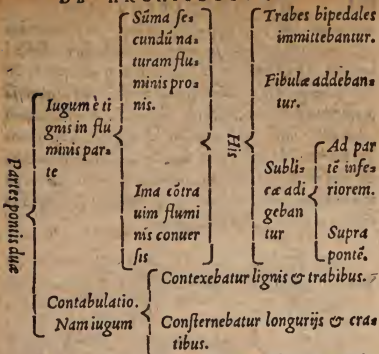 DE
Partes pontis duæ
Iugum è ti
gnis in flu
minis par=
te
Sũma ſe=
cundũ na=
turam flu=
minis pro=
nis.
Ima cõtra
uim flumi
nis conuer
ſis
His
Trabes bipedales
immittebantur.
Fibulæ addeban=
tur.
Subli=
cæ adi
geban
tur
Ad par
tẽ infe=
riorem.
Supra
pontẽ.
Contabulatio.
Nam iugum
Contexebatur lignis & trabibus.
Conſternebatur longurijs & cra=
tibus.